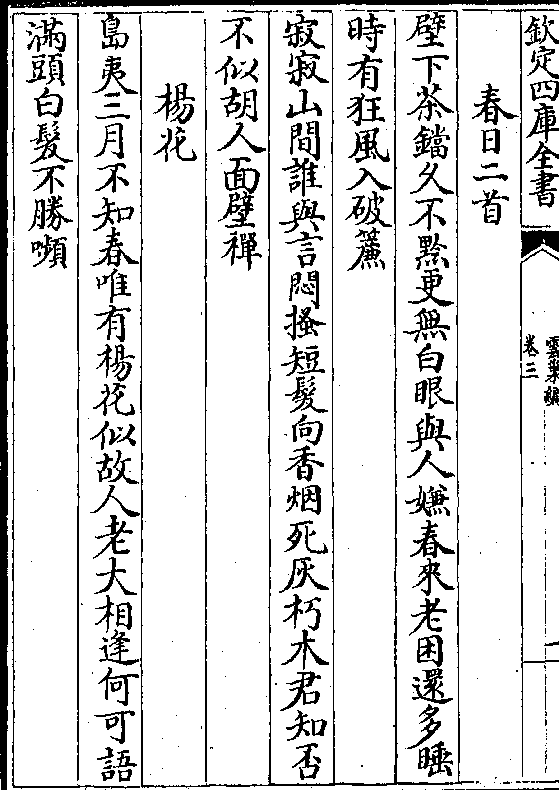 欽定四庫全書
雲巢編
卷三
春日二首
壁下茶鐺久不黔更無白眼與人嫌春來老困還多睡
時有狂風入破簾
寂寂山間誰與言悶搔短髮向香烟死灰朽木君知否
不似胡人面壁禪
楊花
島夷三月不知春唯有楊花似故人老大相逢何可語
滿頭白髮不勝嚬